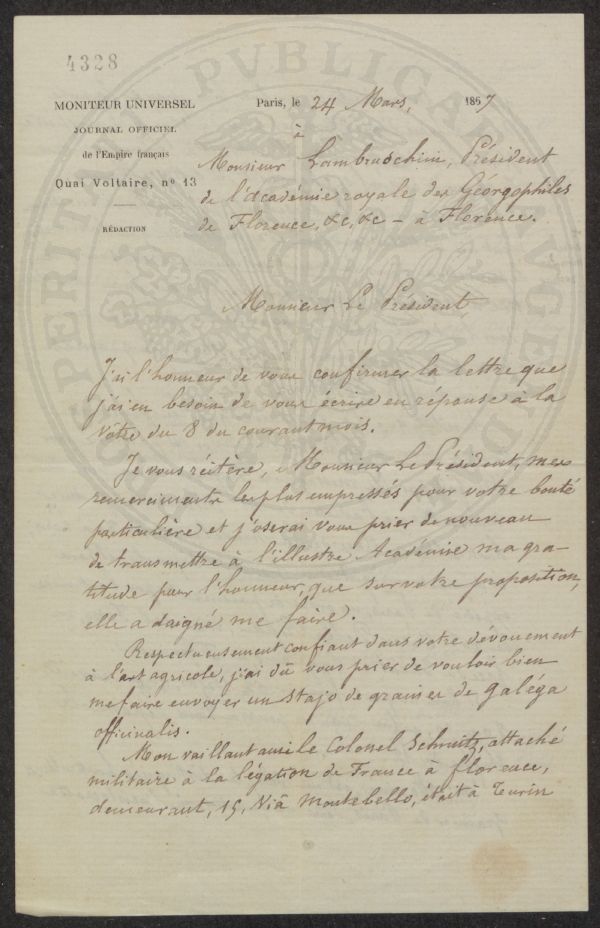 4328
MONITEUR UNIVERSEL
JOURNAL OFFICIEL
de l'Empire français
Quai Voltaire, nº 13
RÉDACTION
Paris, le 24 Mars, 1867
à
Monsieur Lambruschini, Président
de l'Académie royale des Géorgophiles
de Florence, &c, &c - à Florence.
Monsieur Le Président
J'ai l'honneur de vous confirmer la lettre que
j'ai eu besoin de vous écrire en réponse à la
vôtre du 8 du courant mois.
Je vous réitère, Monsieur Le Président, mes
remerciments les plus empressés pour votre bonté
particulière et j'oserai vous prier de nouveau
de transmettre à l'illustre Académie ma gra-
titude pour l'honneur, que sur votre proposition,
elle a daigné me faire.
Respectueusement confiant dans votre dévouement
à l'art agricole, j'ai dû vous prier de vouloir bien
me faire envoyer un stajo de graines de galéga
officinalis.
Mon vaillant ami le Colonel Schmitz, attaché
militaire à la légation de France à florence,
demeurant, 15, Viâ Montebello, était à Turin
PVBLICAE
PROSPERITATI
AVGENDAE